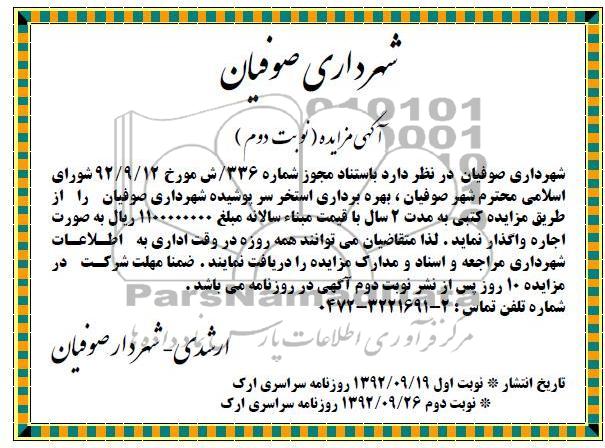 شهرداری صوفیان
آگهی مزایده (نوبت دوم)
شهرداری صوفیان در نظر دارد باستناد مجوز شماره ۳۳۶/ش مورخ ۹۲/۹/۱۲ شورای
اسلامی محترم شهر صوفیان ، بهره برداری استخر سر پوشیده شهرداری صوفیان را از
طریق مزایده کتبی به مدت ۲ سال با قیمت مبناء سالانه مبلغ ۱۱۰۰۰۰۰۰۰۰ ریال به صورت
اجاره واگذار نماید . لذا متقاضیان می توانند همه روزه در وقت اداری به اطلاعات
شهرداری مراجعه و اسناد و مدارک مزایده را دریافت نمایند . ضمنا مهلت شرکت در
مزایده ۱۰ روز پس از نشر نوبت دوم آگهی در روزنامه می باشد .
شماره تلفن تماس : ۲-۳۲۲۱۶۹۱-۰۴۷۲
ParsNamadData
مرکز فرآوری اطلاعات پارس نماد داده ها
ارشدی - شهردار صوفیان
تاریخ انتشار * نوبت اول ۱۳۹۲/۰۹/۱۹ روزنامه سراسری ارک
* نوبت دوم ۱۳۹۲/۰۹/۲۶ روزنامه سراسری ارک